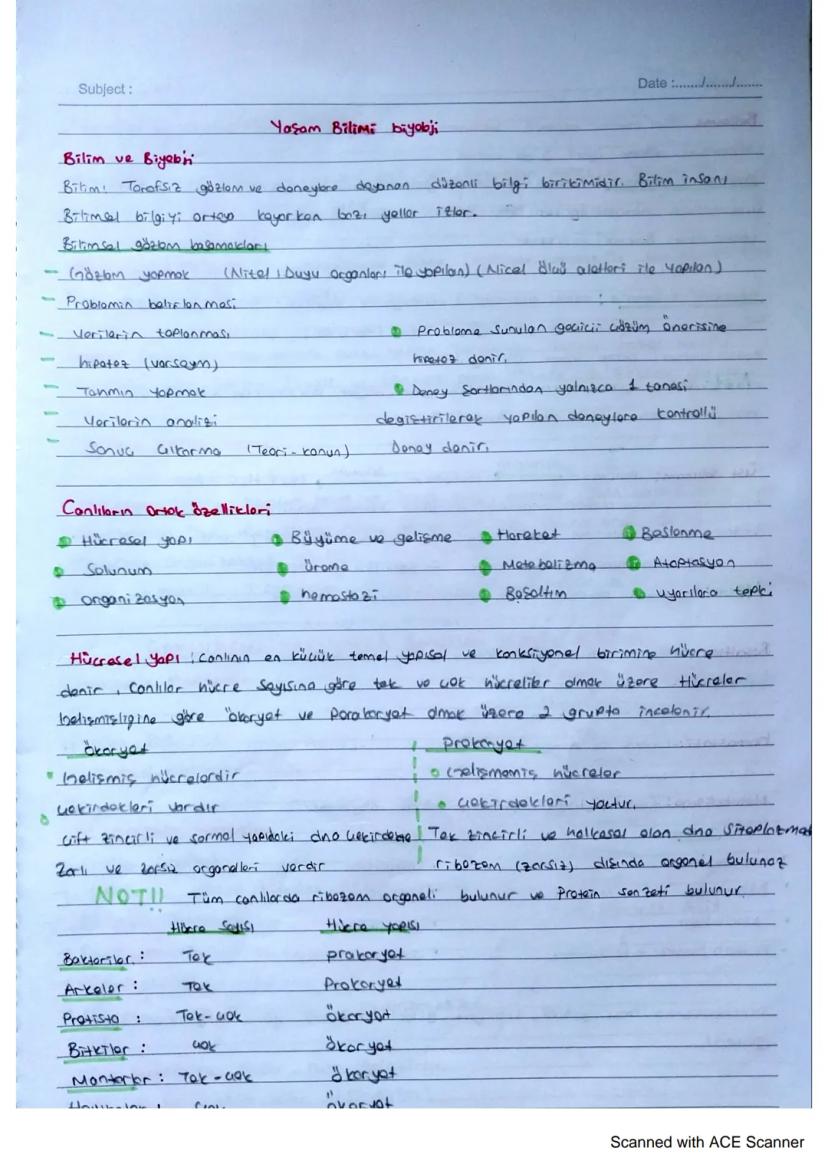 Subject :
Date :......./......./.......
Yaşam Bilimi biyoloji
Bilim ve Biyoloji
Bilim: Tarafsız gözlem ve deneylere dayanan düzenli bilgi birikimidir. Bilim insanı
Bilimsel bilgiyi ortaya koyarken bazı yollar izler.
Bilimsel gözlem basamakları
- Gözlem yapmak (Nitel : Duyu organları ile yapılan) (Nicel ölçü aletleri ile yapılan)
- Problemin belirlenmesi
- Verilerin toplanması
Probleme sunulan geçici çözüm önerisine
- hipotez (varsayım)
hipotez denir.
- Tahmin yapmak
Deney şartlarından yalnızca 1 tanesi
- Verilerin analizi
degiştirilerek yapılan deneylere kontrollü
- Sonuç çıkarma (Teori - kanun)
Deney denir.
Canlıların ortak özellikleri
Hücresel yapı Büyüme ve gelişme Hareket Beslenme
Solunum üreme Metebolizma Ataptasyon
organizasyon hemostazi Boşaltım uyarılara tepki
Hücresel yapı : canlının en küçük temel yapısal ve fonksiyonel birimine hücre
denir. Canlılar hücre sayısına göre tek ve çok hücreliler olmak üzere Hücreler
Gelişmişligine göre ökaryat ve Parakaryat olmak üzere 2 grupta incelenir.
ökaryat
Prokaryat
Gelişmiş hücrelerdir
Gelişmemiş hücreler
çekirdekleri vardır
çekirdekleri yoktur.
çift zincirli ve sarmal yapıdaki dna çekirdekte
Tek zincirli ve halkasal olan dna sitoplazmat
Zarlı ve zarsız organelleri vardır
ribozom (zarsız) dışında organel bulunaz
NOT!! Tüm canlılarda ribozom organeli bulunur ve Protein sentezi bulunur.
Hücre Sayısı Hücre yapısı
Bakteriler : Tek prakaryat
Arkeler : Tek Prokaryat
Protista : Tek-çok ökaryat
Bitkiler : çok ökaryat
Mantarlar : Tek-çok ökaryat
ökaryat
Scanned with ACE Scanner